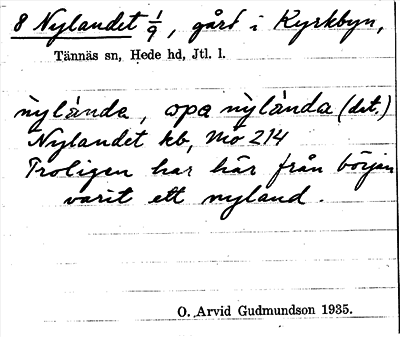 8 Nylandet 1/9, gård i Kyrkbyn,
Tännäs sn, Hede hd, Jtl. l.
nylànda, opa nylànda (dat.)
Nylandet kb, Mo 214
Troligen har här från början
varit ett nyland.
O. Arvid Gudmundson 1935.